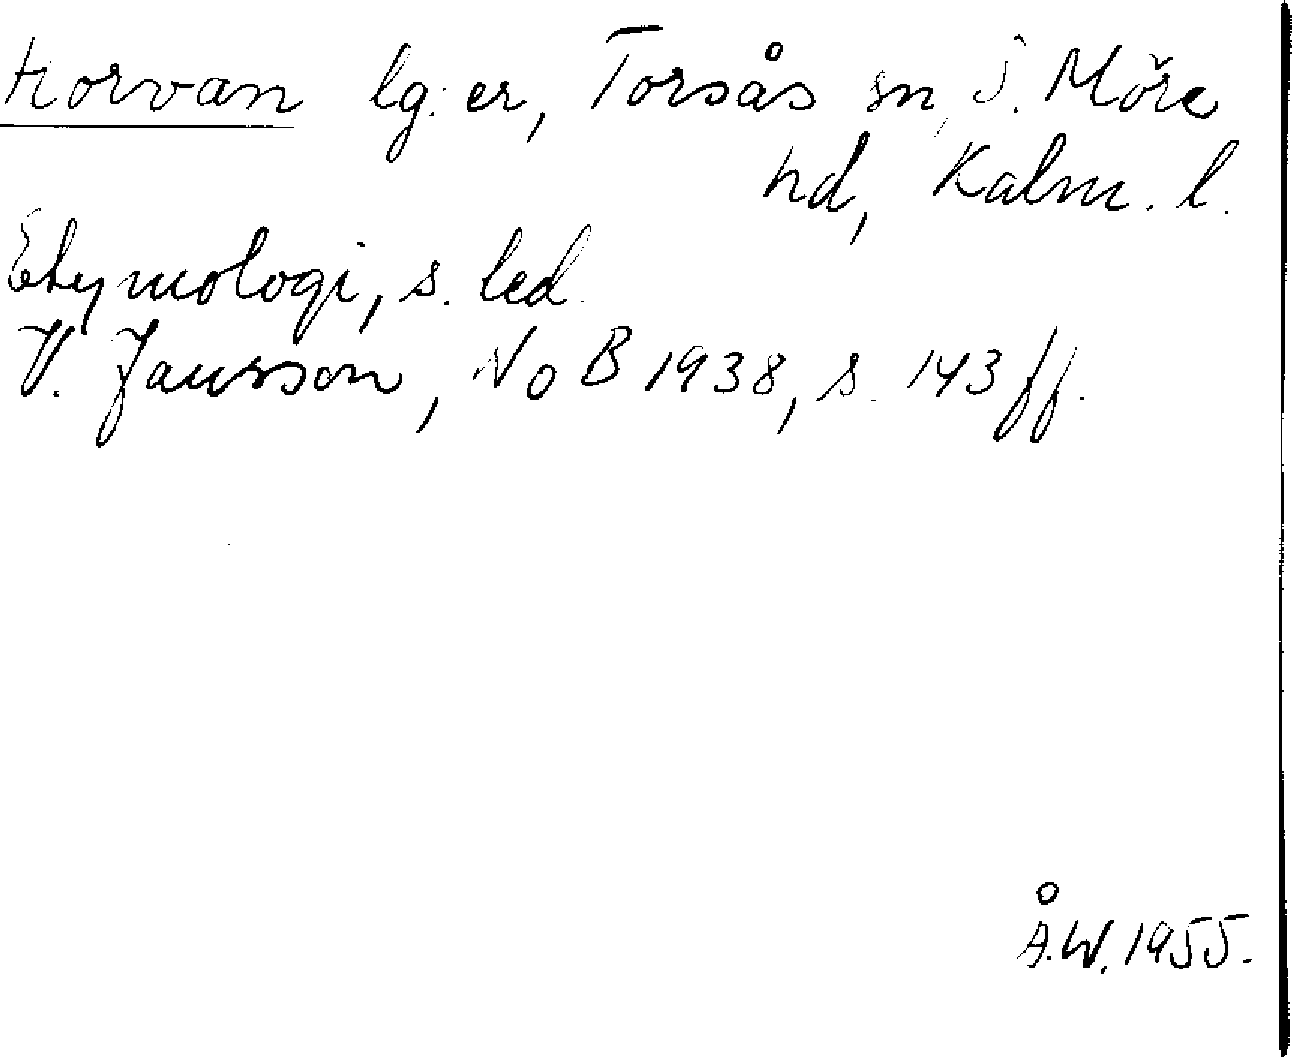 Korvan lg:er, Torsås sn, S. Möre
hd, Kalm. l.
Etymologi, s. led.
V. Jansson, NoB 1938, s. 143 ff.
Å.W. 1955.